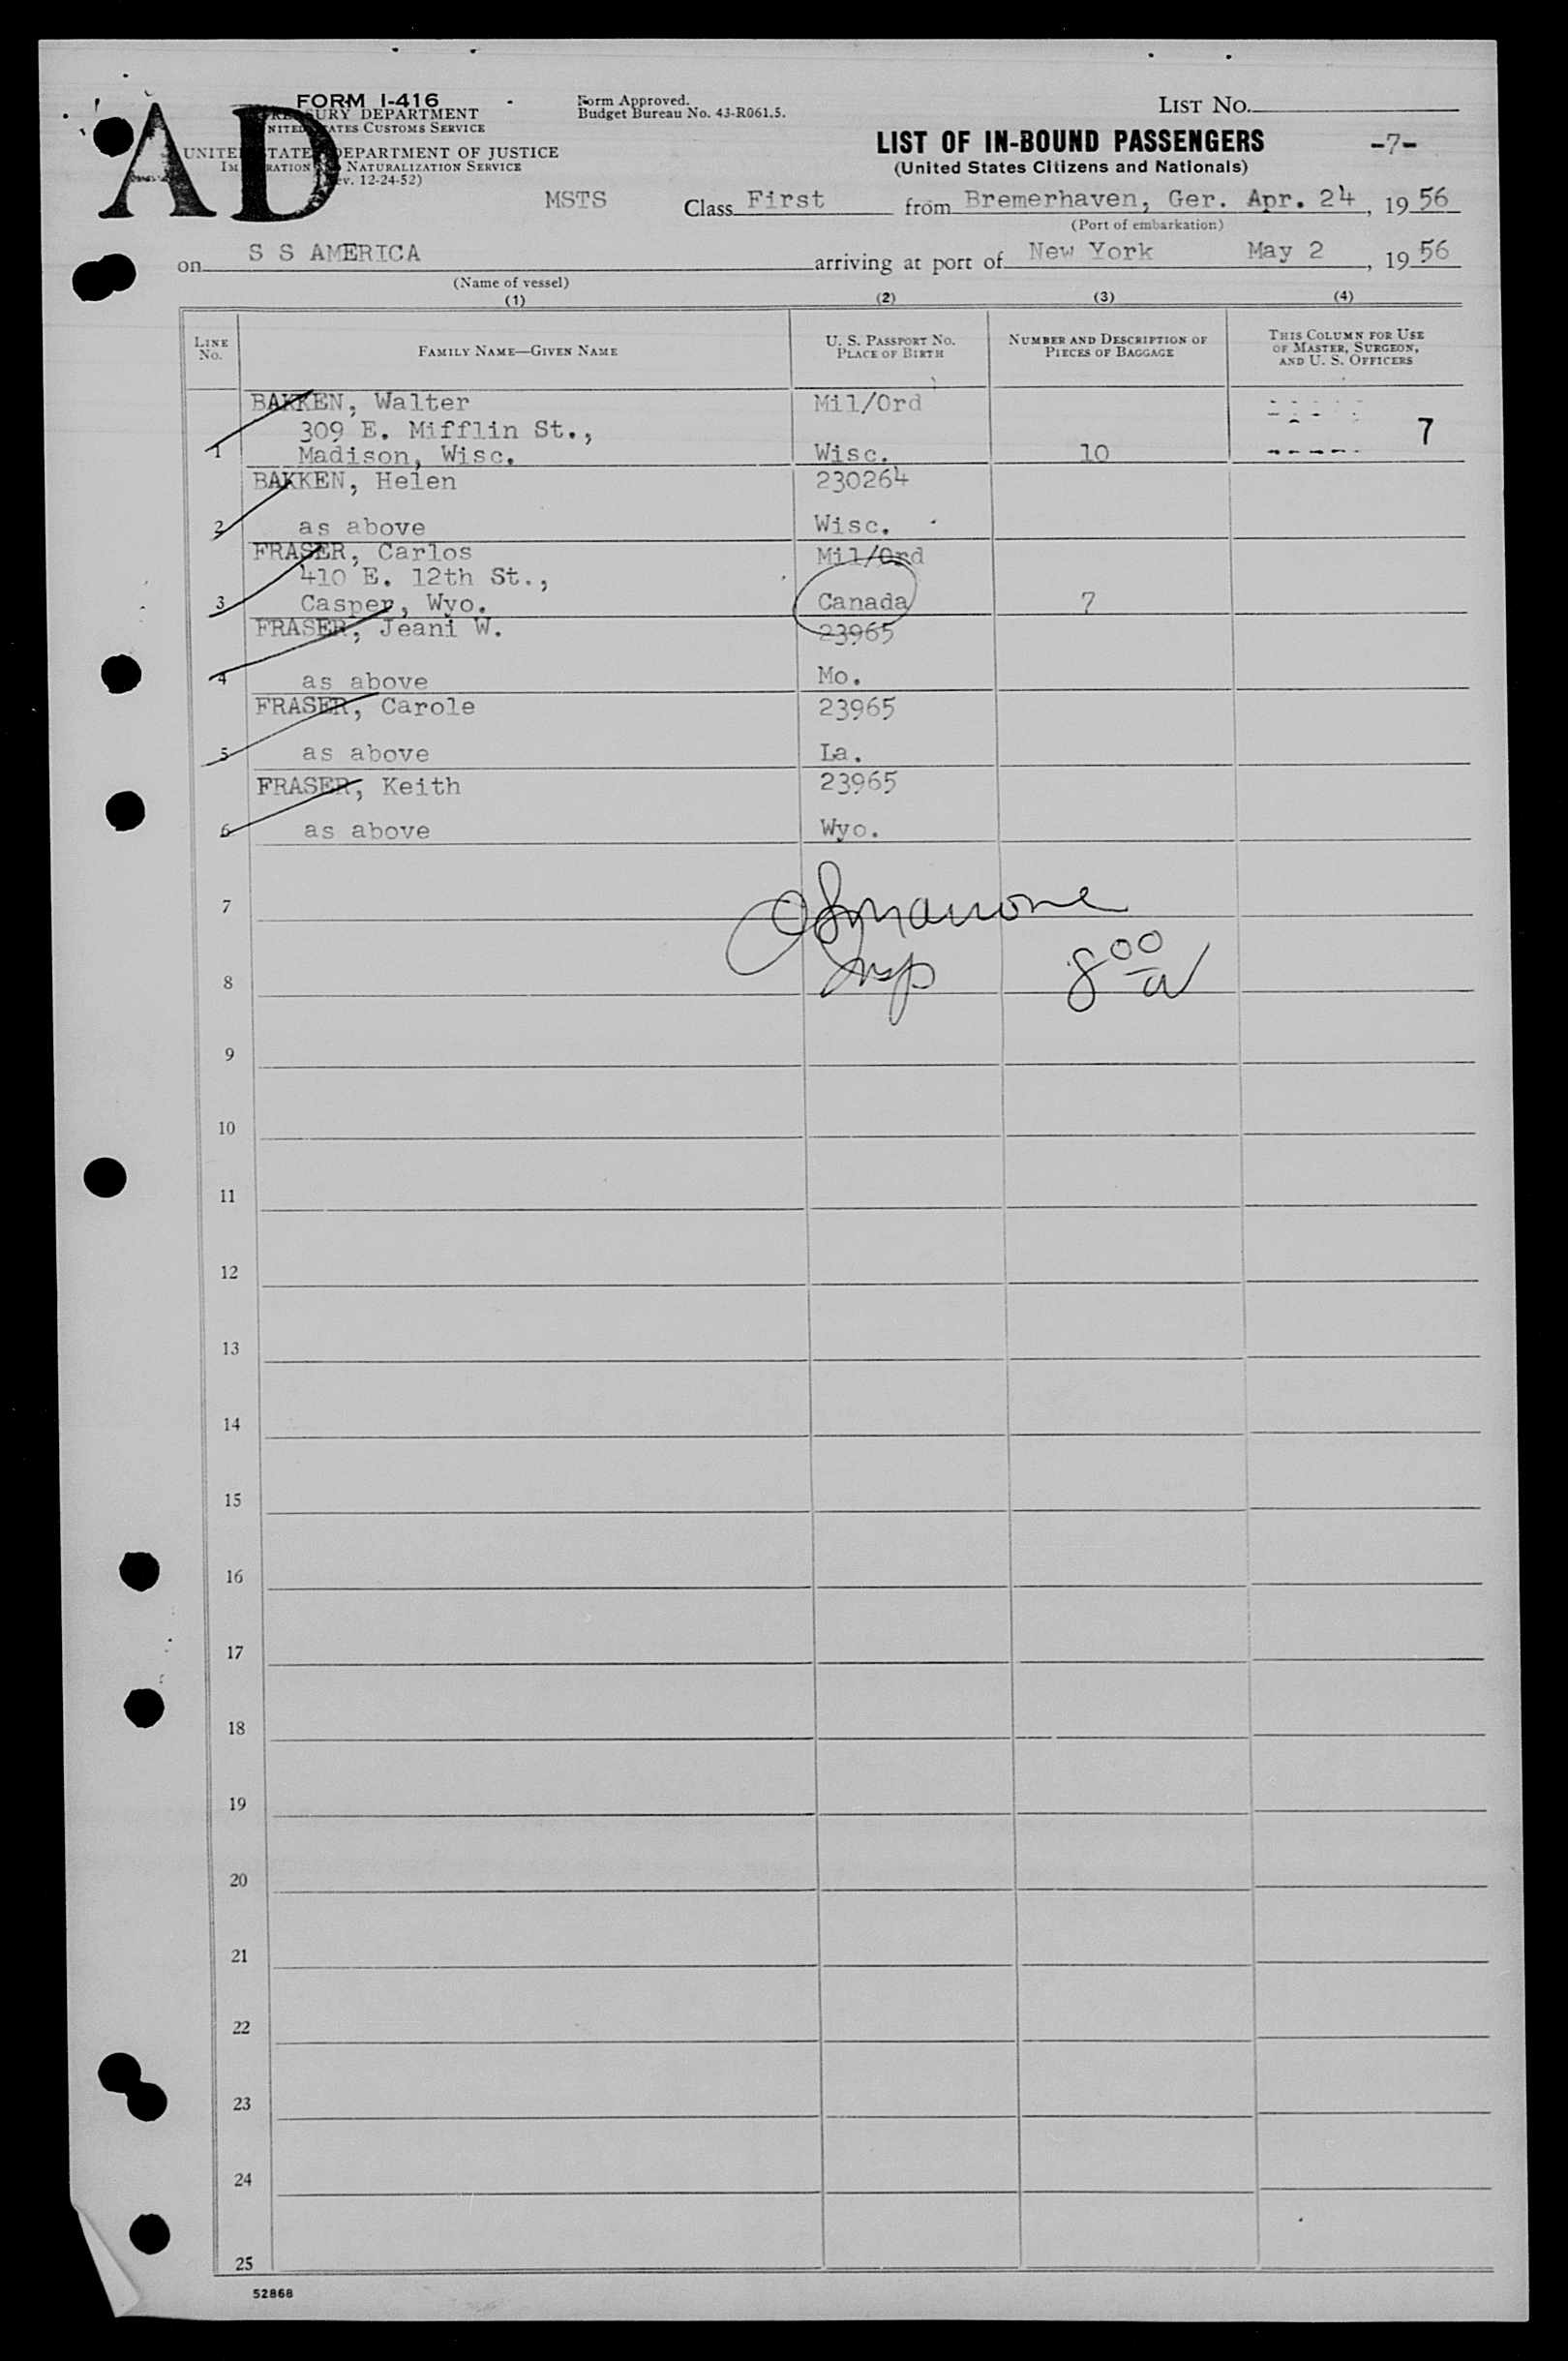 AD
FORM I-416
TREASURY DEPARTMENT
UNITED STATES CUSTOMS SERVICE
UNITED STATES DEPARTMENT OF JUSTICE
IMMIGRATION AND NATURALIZATION SERVICE
(Rev. 12-24-52)
Form Approved.
Budget Bureau No. 43-R061.5.
LIST NO.
LIST OF IN-BOUND PASSENGERS -7-
(United States Citizens and Nationals)
MSTS Class First from Bremerhaven, Ger. Apr. 24, 19 56
(Port of embarkation)
on S S AMERICA arriving at port of New York May 2, 19 56
(Name of vessel)
(1) (2) (3) (4)
LINE NO. FAMILY NAME—GIVEN NAME U. S. PASSPORT NO. PLACE OF BIRTH NUMBER AND DESCRIPTION OF PIECES OF BAGGAGE THIS COLUMN FOR USE OF MASTER, SURGEON, AND U. S. OFFICERS
BAKKEN, Walter Mil/Ord
309 E. Mifflin St., 7
1 Madison, Wisc. Wisc. 10
BAKKEN, Helen 230264
2 as above Wisc.
FRASER, Carlos Mil/Ord
410 E. 12th St.,
3 Casper, Wyo. Canada 7
FRASER, Jeani W. 23965
4 as above Mo.
FRASER, Carole 23965
5 as above La.
FRASER, Keith 23965
6 as above Wyo.
7
Insp 8 00 a
8
9
10
11
12
13
14
15
16
17
18
19
20
21
22
23
24
25
52868